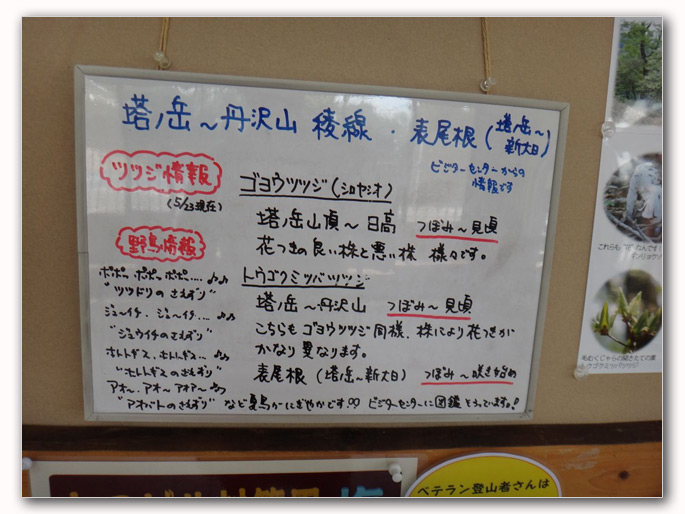 塔ノ岳～丹沢山 稜線・表尾根(塔ノ岳～新大日)
ビジターセンターからの
情報です
ツツジ情報
(5/23現在)
ゴヨウツツジ(シロヤシオ)
塔ノ岳山頂～日高 つぼみ～見頃
花つきの良い株と悪い株 様々です。
トウゴクミツバツツジ
塔ノ岳～丹沢山 つぼみ～見頃
こちらもゴヨウツツジ同様、株により花つきが
かなり異なります。
表尾根(塔ノ岳～新大日) つぼみ～咲き始め
野鳥情報
ポポッ、ポポッ、ポポッ....♪♪
"ツツドリのさえずり"
ジューイチ、ジューイチ...♪
"ジュウイチのさえずり"
ホトトギス、ホトトギス..♪
"ホトトギスのさえずり"
アオ～、アオ～ アオアー♪
"アオバトのさえずり" など夏鳥がにぎやかです ビジターセンターに図鑑そろっています。!
ベテラン登山者さんは